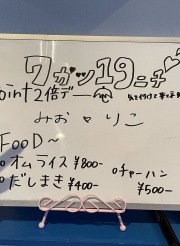 7ガツ19ニチ♡
oint2倍デー
みお♡りこ
FooD～
○オムライス ¥800-
○だしまき ¥400-
○チャーハン ¥500-